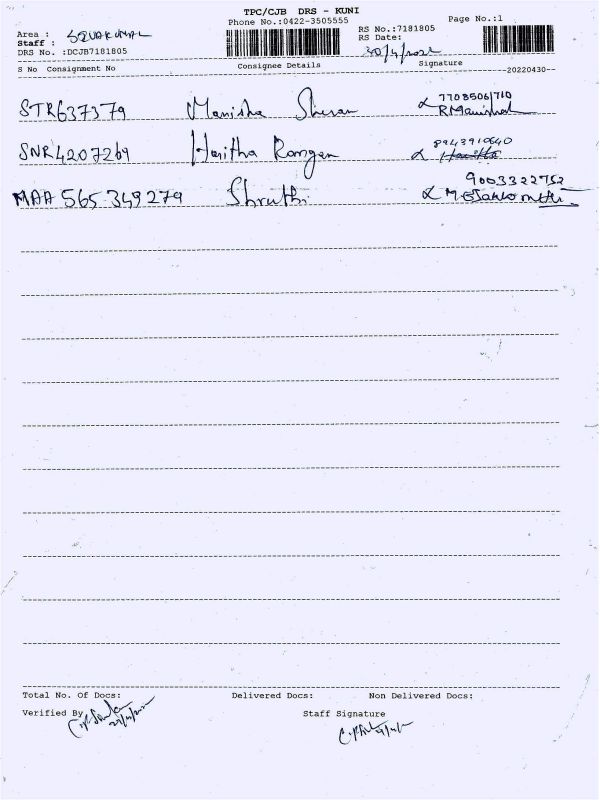 TPC/CJB DRS - KUNI
Phone No.:0422-3505555 Page No.:1
Area : SIVAKUMAR RS No.:7181805
Staff : RS Date: 30/4/2022
DRS No. :DCJB7181805
S No Consignment No Consignee Details Signature
20220430
STR637379 Manisha Sheran 77085061710
R Manisha
SNR4207269 Haritha Rangan 8943910640
Haritha
MAA 565 349279 Shruthi 9003322752
Total No. Of Docs: Delivered Docs: Non Delivered Docs:
Verified By
Staff Signature